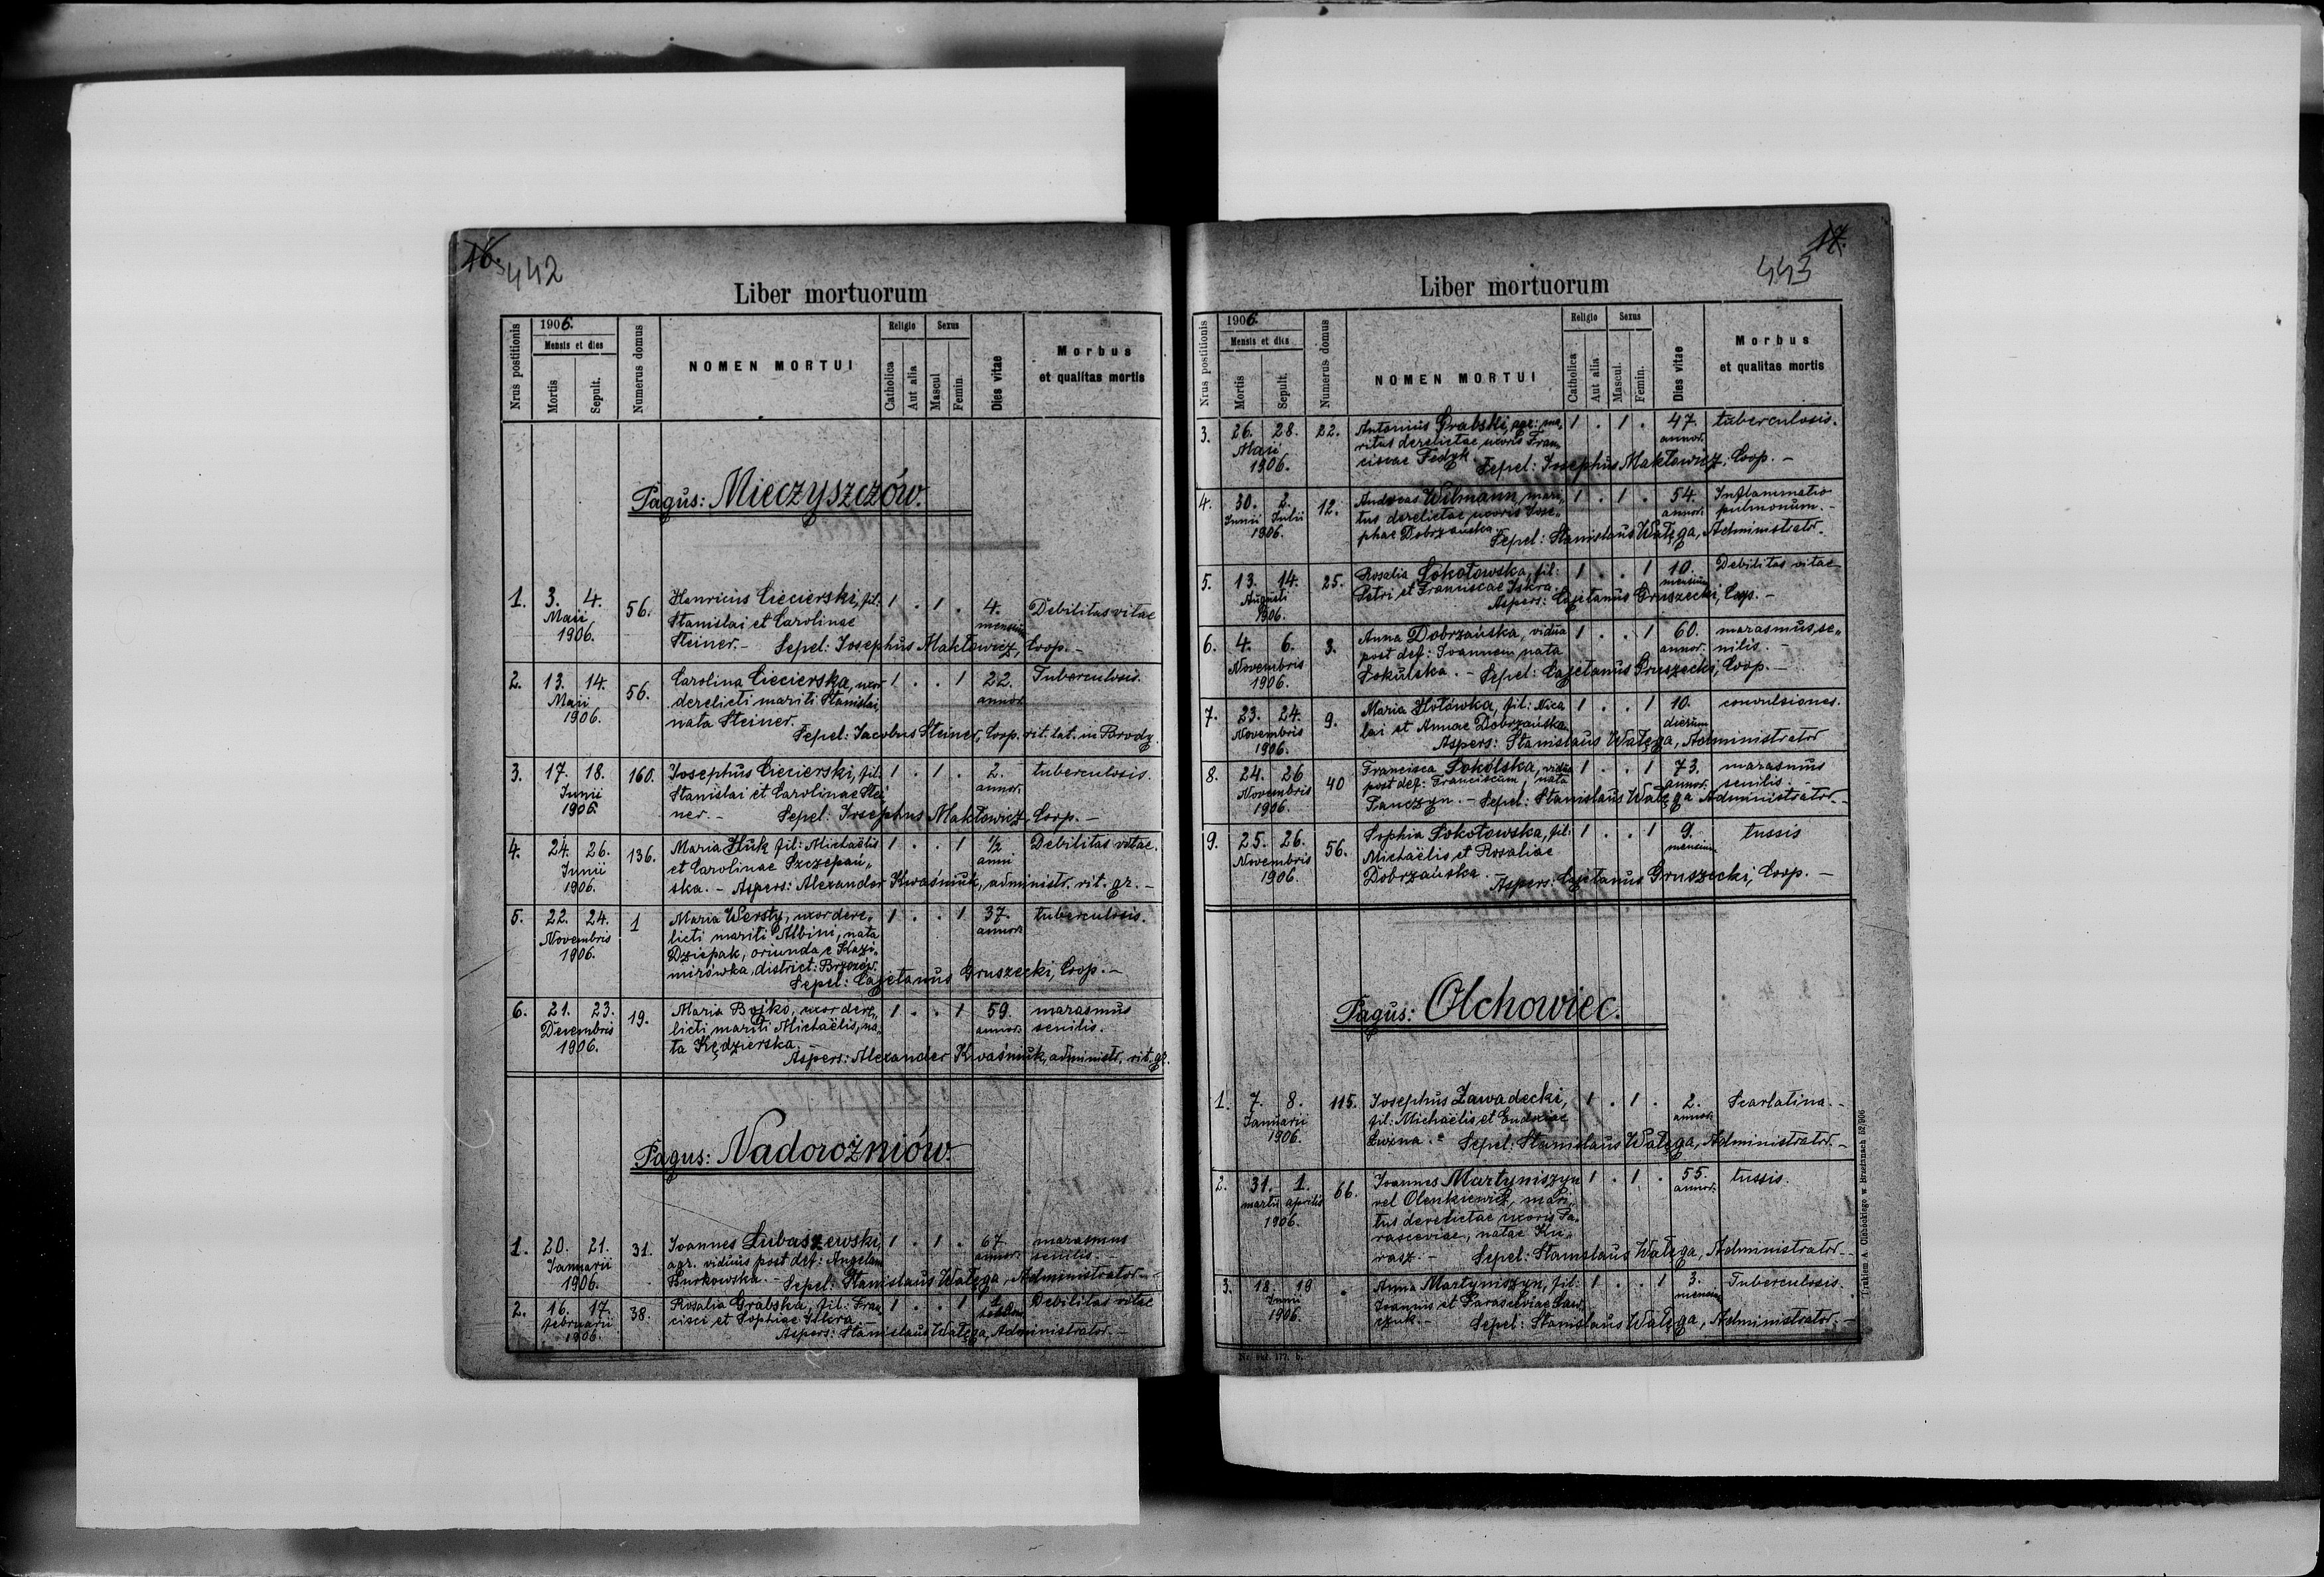 16.
442
Liber mortuorum
Nrus postitionis
1906.
Mensis et dies
Mortis
Sepult.
Numerus domus
NOMEN MORTUI
Religio
Catholica
Aut alia
Sexus
Mascul
Femin.
Dies vitae
Morbus
et qualitas mortis
Pagus: Mieczyszczów.
1. 3. 4. 56. Henricus Ciecierski, fil. 1 . 1 . 4. Debilitas vitae
Maii Stanislai et Carolinae mensium
1906. Steiner. – Sepel: Josephus Makłowicz, Coop. –
2. 13. 14. 56. Carolina Ciecierska, uxor 1 . . 1 22. Tuberculosis.
Maii derelicti mariti Stanislai, annor.
1906. nata Steiner.
Sepel: Jacobus Steiner, Coop. rit. lat. in Brody.
3. 17. 18. 160. Josephus Ciecierski, fil. 1 . 1 . 2. tuberculosis.
Junii Stanislai et Carolinae Stei annor.
1906. ner. – Sepel: Josephus Makłowicz, Coop. –
4. 24. 26. 136. Maria Huk fil: Michaëlis 1 . . 1 1/2 Debilitas vitae.
Junii et Carolinae Szczepań„ anni
1906. ska. – Aspers: Alexander Kwaśniuk, administr. rit. gr. –
5. 22. 24. 1 Maria Wersty, uxor dere„ 1 . . 1 37. tuberculosis.
Novembris licti mariti Albini, nata annor.
1906. Dziepak, oriunda e Kazi„
mirówka, district:
Sepel: Cajetanus Gruszecki, Coop. –
6. 21. 23. 19. Maria Bojko, uxor dere„ 1 . . 1 59. marasmus
Decembris licti mariti Michaëlis, na„ annor. senilis.
1906. ta Kędzierska. –
Aspers: Alexander Kwaśniuk, administr. rit. gr.
Pagus: Nadorożniów
1. 20. 21. 31. Joannes Lubaszewski, 1 . 1 . 67. marasmus
Januarii agr. viduus post def: Angelam annor. senilis. –
1906. Burkowska. – Sepel: Stanislaus Wałęga, Administrator. –
2. 16. 17. 38. Rosalia Grabska, fil: Fran„ 1 . . 1 1 Debilitas vitae
februarii cisci et Sophiae
1906. Aspers: Stanislaus Wałęga, Administrator. –
17.
443
Liber mortuorum
Nrus postitionis
1906.
Mensis et dies
Mortis
Sepult.
Numerus domus
NOMEN MORTUI
Religio
Catholica
Aut alia
Sexus
Mascul.
Femin.
Dies vitae
Morbus
et qualitas mortis
3. 26. 28. 22. Antonius Grabski, agr: ma„ 1 . 1 . 47. tuberculosis.
Maii ritus derelictae uxoris Fran„ annor.
1906. ciscae Fedyk. Sepel: Josephus Makłowicz, Coop. –
4. 30. 2. 12. Andreas Wilmann, mari„ 1 . 1 . 54. Inflammatio
Junii Julii tus derelictae uxoris Jose„ annor. pulmonum. –
1906. phae Dobrzańska. Sepel: Stanislaus Wałęga, Administrator.
5. 13. 14. 25. Rosalia Sokołowska, fil: 1 . . 1 10. Debilitas vitae
Augusti Petri et Franciscae Iskra. mensium
1906. Aspers: Cajetanus Gruszecki, Coop. –
6. 4. 6. 3. Anna Dobrzańska, vidua 1 . . 1 60. marasmus se„
Novembris post def: Joannem nata annor. nilis. –
1906. Sokulska. – Sepel: Cajetanus Gruszecki, Coop. –
7. 23. 24. 9. Maria Hołówka, fil: Nico 1 . . 1 10. convulsiones.
Novembris lai et Annae Dobrzańska dierum
1906. Aspers: Stanislaus Wałęga, Administrator
8. 24. 26 40 Francisca Sokólska, vidua 1 . . 1 73. marasmus
Novembris post def: Franciscum, nata annor. senilis.
1906. Panczyn. – Sepel: Stanislaus Wałęga Administrator. –
9. 25. 26. 56. Sophia Sokołowska, fil: 1 . . 1 9. tussis
Novembris Michaëlis et Rosaliae mensium
1906. Dobrzańska. Aspers: Cajetanus Gruszecki, Coop. –
Pagus: Olchowiec.
1. 7. 8. 115. Josephus Zawadecki, 1 . 1 . 2. Scarlatina. –
Januarii fil: Michaëlis et Eudoxiae annor.
1906. Sepel: Stanislaus Wałęga, Administrator. –
2. 31. 1. 66. Joannes Martyniszyn 1 . 1 . 55. tussis.
martii aprilis vel Olenkiewicz, mari„ annor.
1906. tus derelictae uxoris Pa„
rasceviae, natae Ku„
rasz. – Sepel: Stanislaus Wałęga, Administrator. –
3. 18. 19 . Anna Martyniszyn, fil: 1 . . 1 3. Tuberculosis.
Junii Joannis et Parasceviae mensium
1906. Sepel: Stanislaus Wałęga, Administrator. –